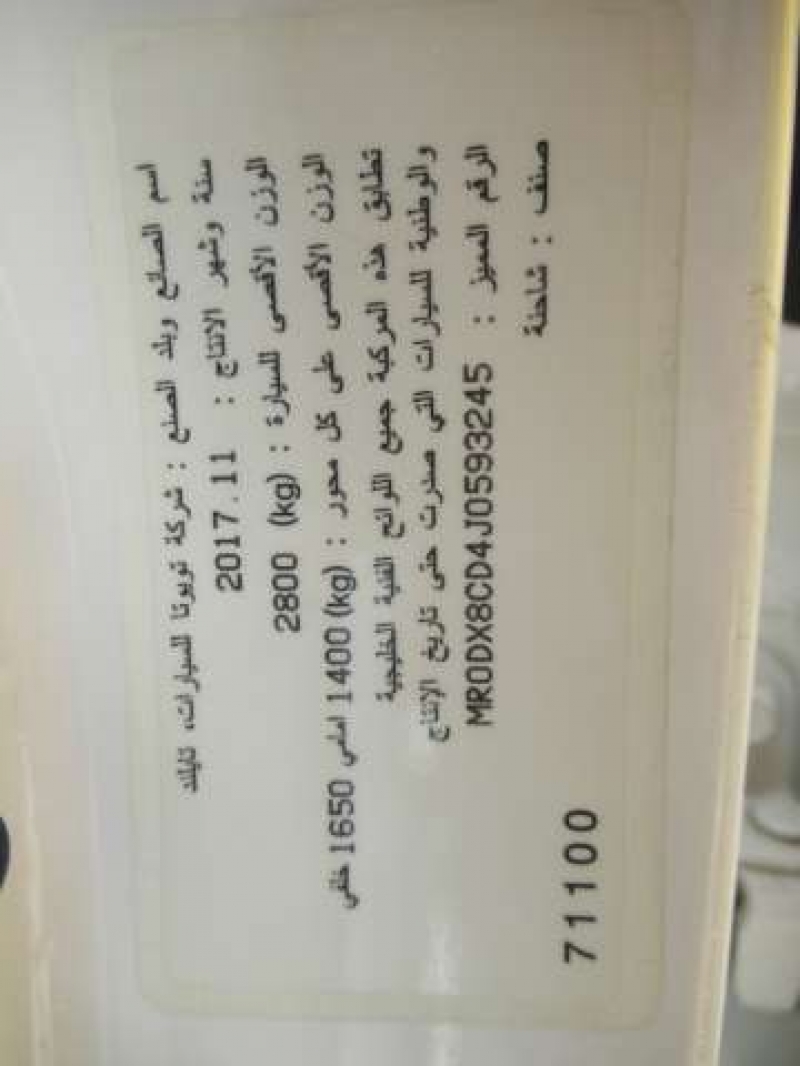 اسم الصانع وبلد الصنع : شركة تويوتا للسيارات، تايلاند
سنة وشهر الانتاج : 2017.11
الوزن الأقصى للسيارة : (kg) 2800
الوزن الأقصى على كل محور : (kg) 1400 امامي 1650 خلفي
تطابق هذه المركبة جميع اللوائح الفنية الخليجية
والوطنية للسيارات التي صدرت حتى تاريخ الإنتاج
الرقم المميز : MR0DX8CD4J0593245
صنف : شاحنة
71100